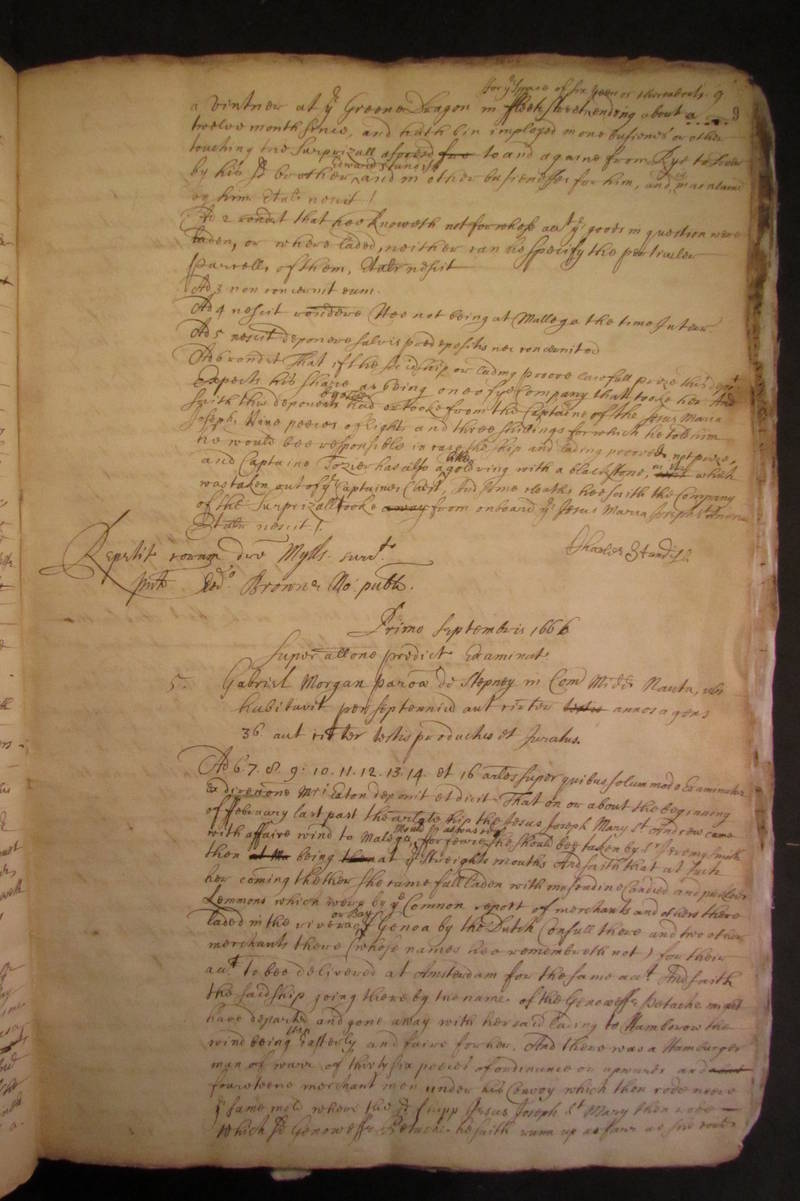 for ye space of six yeeres thereabouts 9
a vintner at ye Greene Dragon in ffleetstreet ending about a
twelve month since, and hath bin imployed in one busines or other
touching the Surprizall aforesd to and againe from Rye to
by his sd brother Edward Standish and in other businesses for him, and maintained
by him. et alr nescit /
Ad 2 rondet that hee knoweth not for whose acct ye goods in question were
laden, or where laded, neither can hee specifiy the perticuler
parcells of them, et alr nescit
Ad 3 non concernit eum.
Ad 4 nescit rondere Hee not being at Mallega the time Inter
Ad 5 nescit deponere salvis predepositis nec concernit eum
Ad 6 rondet That if the sd ship or lading proove lawfull prize this dept
expects his share as being one of ye Company that tooke her And
saith this deponent had or tooke from the Captaine of the Jesus Maria
Joseph, Nine peeces of Eight and three shillings for which he told him
he would bee responsible in case the ship and lading prooved not prize,
and Captaine Tozier has also a little gold ring with a black stone, which
was taken out of ye Captaines Chest, And some cloaths hee saith the Company
of the Surprizall tooke away from onboard ye Jesus Maria Joseph St Andrew
Et alr nescit /.
Charles Standish
Repetit coram dco Mylls surrte
pnte Edo Browne No: pubco.
Primo Septembris 1666
Super allone predict Examinat
5. Gabriel Morgan paroa de Stepney in Com Midd Nauta, ubi
habitavit per septennium aut circiter annos agens
36 aut circiter testis productus et Juratus.
Ad 6 7. 8. 9. 10. 11. 12. 13. 14. et 16 arlos super quibus solummodo Examinatur
ex direcione Mri Eaton deponit et dicit That on or about the beginning
of ffebruary last past the arlate ship the Jesus Joseph Mary St Andrew came
with a ffaire wind to Malega, for feare she should bee taken by Sr Jeremy Smith
then being then at ye Streights mouth And saith that at such
her coming thether she came full laden with and
Lemmons which were by ye Common report of merchants and others there
laded in the river or Bay of Genoa by the Dutch Consull there and two other
merchants there (whose names hee remembreth not) for their
acct To bee delivered at Amsterdam for the same acct And saith
the said ship going there by the name of the Genoweese Petache might
have departed and gone away with her said lading to Hambrow the
wind being then Easterly and faire for her. And there was a Hamburger
man of warr of thirty six peeces of ordinance or upwards and
fourteene merchant men under his Convoy which then rode neere
ye same mole where the sd shipp Jesus Joseph St Mary then rode
Which sd Genoweese Petache he saith came up as farr as she could